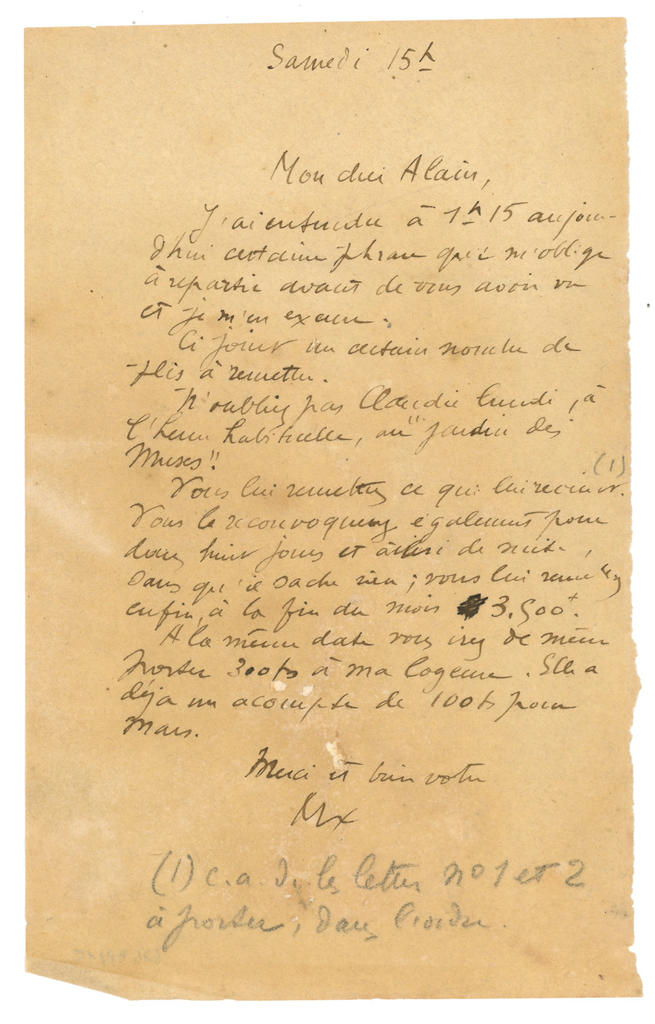 Samedi 15h
Mon cher Alain,
J'ai entendu à 1h15 aujour-
d'hui certaine phrase qui m'oblige
à repartir avant de vous avoir vu
et je m'en excuse.
Ci joint un certain nombre de
plis à remettre.
N'oubliez pas Claudie lundi, à
l'heure habituelle, au "jardin des
Muses".
(1)
Vous lui remettrez ce qui lui revient.
Vous le reconvoquerez également pour
dans huit jours et ainsi de suite,
sans qu'il sache rien ; vous lui remettrez
enfin, à la fin du mois 3.500f.
A la même date vous irez de même
porter 300frs à ma logeuse. Elle a
déjà un acompte de 100frs pour
Mars.
Merci et bien votre
(1) c.a.d. les lettres no 1 et 2
à porter, dans l'ordre.